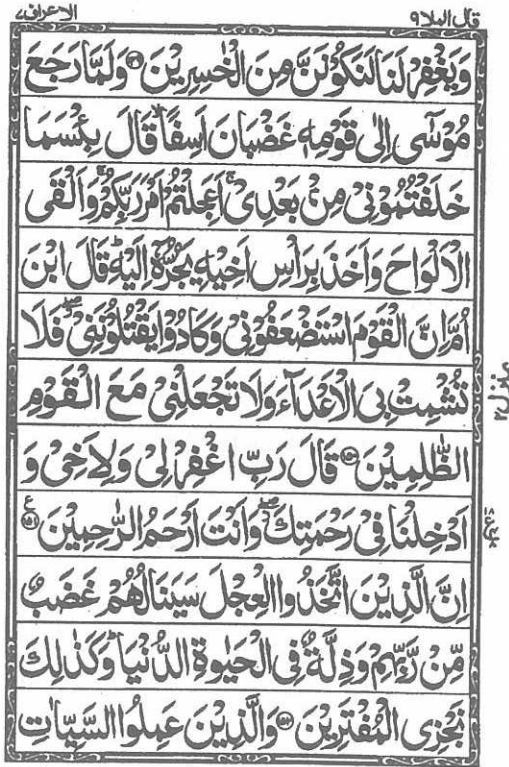 قال الملا۹
الاعراف۷
وَيَغْفِرْ لَنَا لَنَكُوْنَنَّ مِنَ الْخٰسِرِيْنَ ۝۱۴۹ وَلَمَّا رَجَعَ
مُوْسٰٓى اِلٰى قَوْمِهٖ غَضْبَانَ اَسِفًا ۙ قَالَ بِئْسَمَا
خَلَفْتُمُوْنِيْ مِنْۢ بَعْدِيْ ۚ اَعَجِلْتُمْ اَمْرَ رَبِّكُمْ ۚ وَاَلْقَى
الْاَلْوَاحَ وَاَخَذَ بِرَاْسِ اَخِيْهِ يَجُرُّهٗٓ اِلَيْهِ ؕ قَالَ ابْنَ
اُمَّ اِنَّ الْقَوْمَ اسْتَضْعَفُوْنِيْ وَكَادُوْا يَقْتُلُوْنَنِيْ ۖ فَلَا
تُشْمِتْ بِيَ الْاَعْدَآءَ وَلَا تَجْعَلْنِيْ مَعَ الْقَوْمِ
الظّٰلِمِيْنَ ۝۱۵۰ قَالَ رَبِّ اغْفِرْ لِيْ وَلِاَخِيْ وَ
اَدْخِلْنَا فِيْ رَحْمَتِكَ ۖ وَاَنْتَ اَرْحَمُ الرّٰحِمِيْنَ ۝۱۵۱ ع
اِنَّ الَّذِيْنَ اتَّخَذُوا الْعِجْلَ سَيَنَالُهُمْ غَضَبٌ
مِّنْ رَّبِّهِمْ وَذِلَّةٌ فِي الْحَيٰوةِ الدُّنْيَا ؕ وَكَذٰلِكَ
نَجْزِي الْمُفْتَرِيْنَ ۝۱۵۲ وَالَّذِيْنَ عَمِلُوا السَّيِّاٰتِ
منزل۲